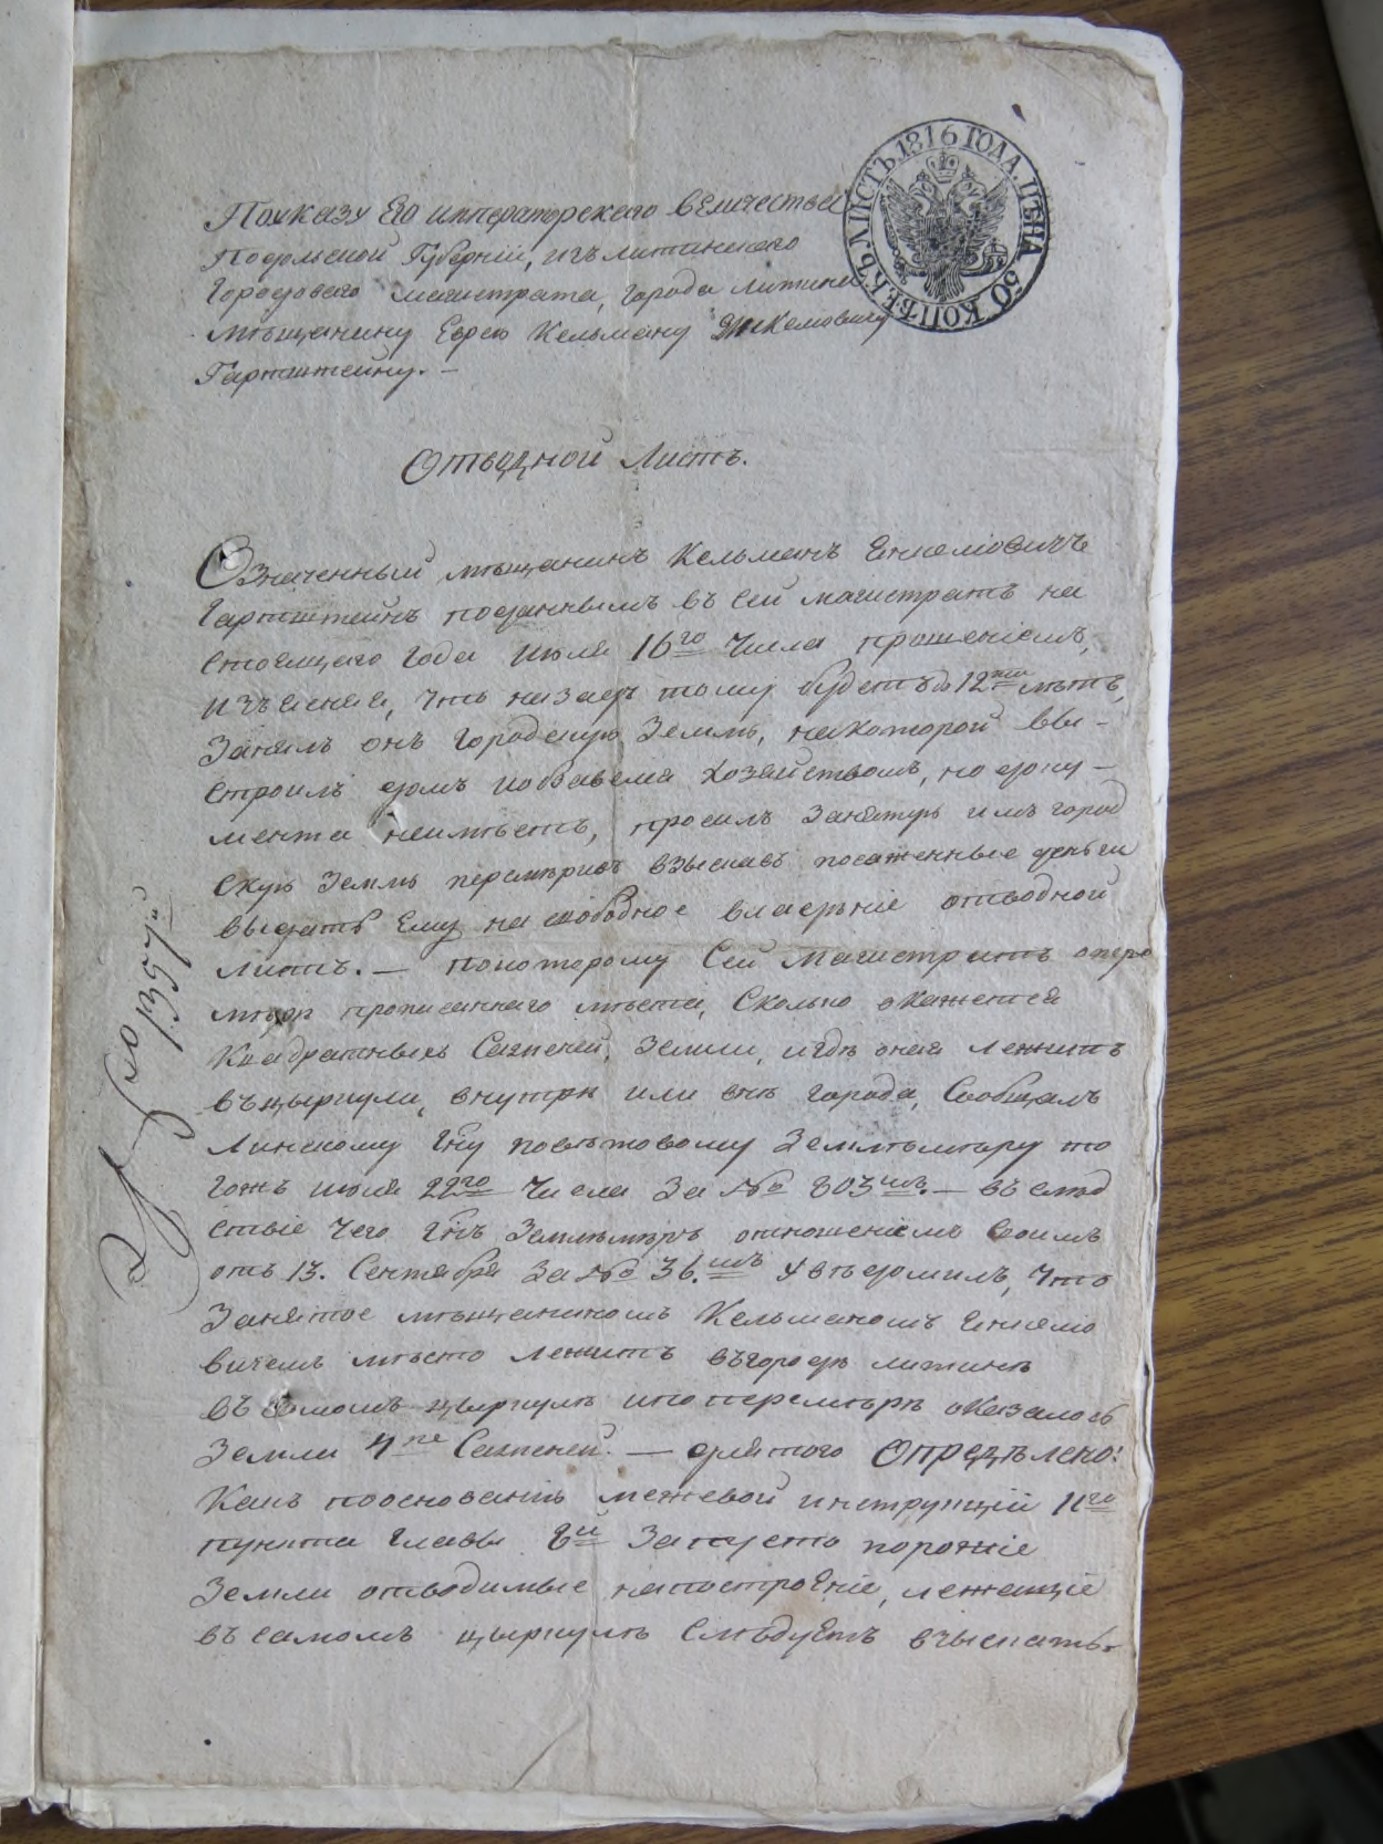 ЛИСТЪ. 1816 ГОДА. ЦѢНА 50 КОПѢЕКЪ.
По указу Его императорскаго величества
Подольской Губерніи, изъ литинскаго
Городоваго магистрата, города литина
мѣщанину Еврею Кельману
Гартштейну. —
Отводной Листъ.
Означенный мѣщанинъ Кельманъ Енкеліовичъ
Гартштейнъ поданнымъ въ сей магистратъ на
стоящаго года июля 16го числа прошеніемъ,
изъясняя, что назадъ тому будетъ до 12ти лѣтъ,
занялъ онъ городскую землю, на которой вы-
строилъ домъ и обзавелся хозяйствомъ, но доку-
мента неимѣетъ, просилъ занятую имъ город
скую землю перемѣривъ взыскавъ посаженные деньги
выдать Ему на свободное владѣніе отводной
листъ. — Покоторому Сей Магистратъ опере
мѣрѣ прописаннаго мѣста, Сколько окажется
Квадратныхъ Саженей, Земли, игдѣ оная лежитъ
въ цыркули, внутри или внѣ города, Сообщалъ
Гну повѣтовому Землѣмѣру то
гожъ июля 22го Числа За № 803мъ. — въ слѣд
ствіе Чего Гнъ Землѣмѣръ отношеніемъ Своимъ
отъ 13. Сентября За № 36.мъ Увѣдомилъ, Что
Занятое мѣщаниномъ Кельманомъ Енкеліо
вичемъ мѣсто лежитъ въ городѣ литинѣ
въ Самомъ цыркулѣ ипо перемѣрѣ оказалось
Земли Саженей. — для того Опредѣлено:
Какъ пооснованію межевой инструкціи 11го
пункта главы Запусто порожніе
Земли отводимые напостроеніе, лежащіе
въ самомъ цыркулѣ Слѣдуетъ взыскать